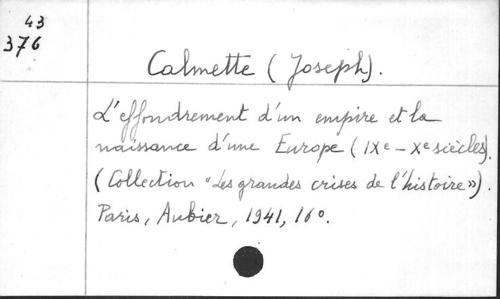 43
376
Calmette (Joseph).
L'effondrement d'un empire et la
naissance d'une Europe (IXe-Xe siècles).
(Collection "Les grandes crises de l'histoire").
Paris, Aubier, 1941, 16°.